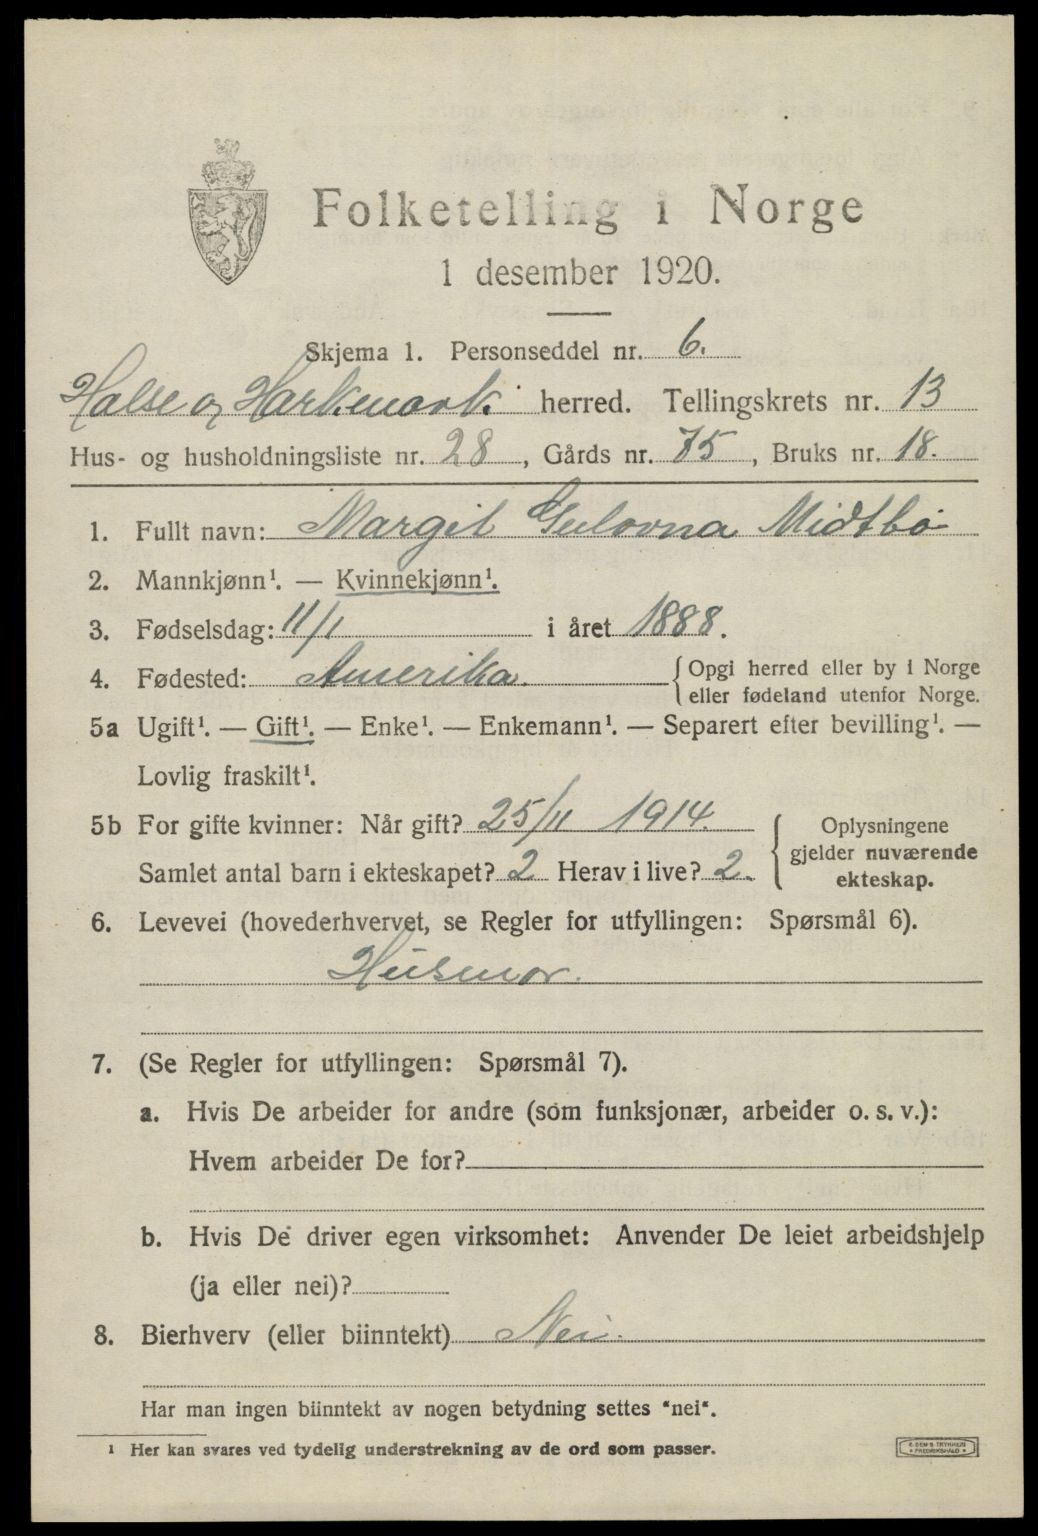 Folketelling i Norge
1 desember 1920.
Skjema 1. Personseddel nr. 6.
Halse og Harkmark. herred. Tellingskrets nr. 13
Hus- og husholdningsliste nr. 28, Gårds nr. 75, Bruks nr. 18.
1. Fullt navn: Margit Gulovna Midtbö
2. Mannkjønn¹. — Kvinnekjønn¹.
3. Fødselsdag: 11/1 i året 1888.
4. Fødested: Amerika. {Opgi herred eller by i Norge
eller fødeland utenfor Norge.
5a Ugift¹. — Gift¹. — Enke¹. — Enkemann¹. — Separert efter bevilling¹. —
Lovlig fraskilt¹.
5b For gifte kvinner: Når gift? 25/11 1914.
Samlet antal barn i ekteskapet? 2 Herav i live? 2.
{Oplysningene
gjelder nuværende
ekteskap.
6. Levevei (hovederhvervet, se Regler for utfyllingen: Spørsmål 6).
Husmor.
7. (Se Regler for utfyllingen: Spørsmål 7).
a. Hvis De arbeider for andre (som funksjonær, arbeider o. s. v.):
Hvem arbeider De for?
b. Hvis De driver egen virksomhet: Anvender De leiet arbeidshjelp
(ja eller nei)?
8. Bierhverv (eller biinntekt) Nei.
Har man ingen biinntekt av nogen betydning settes "nei".
¹ Her kan svares ved tydelig understrekning av de ord som passer.